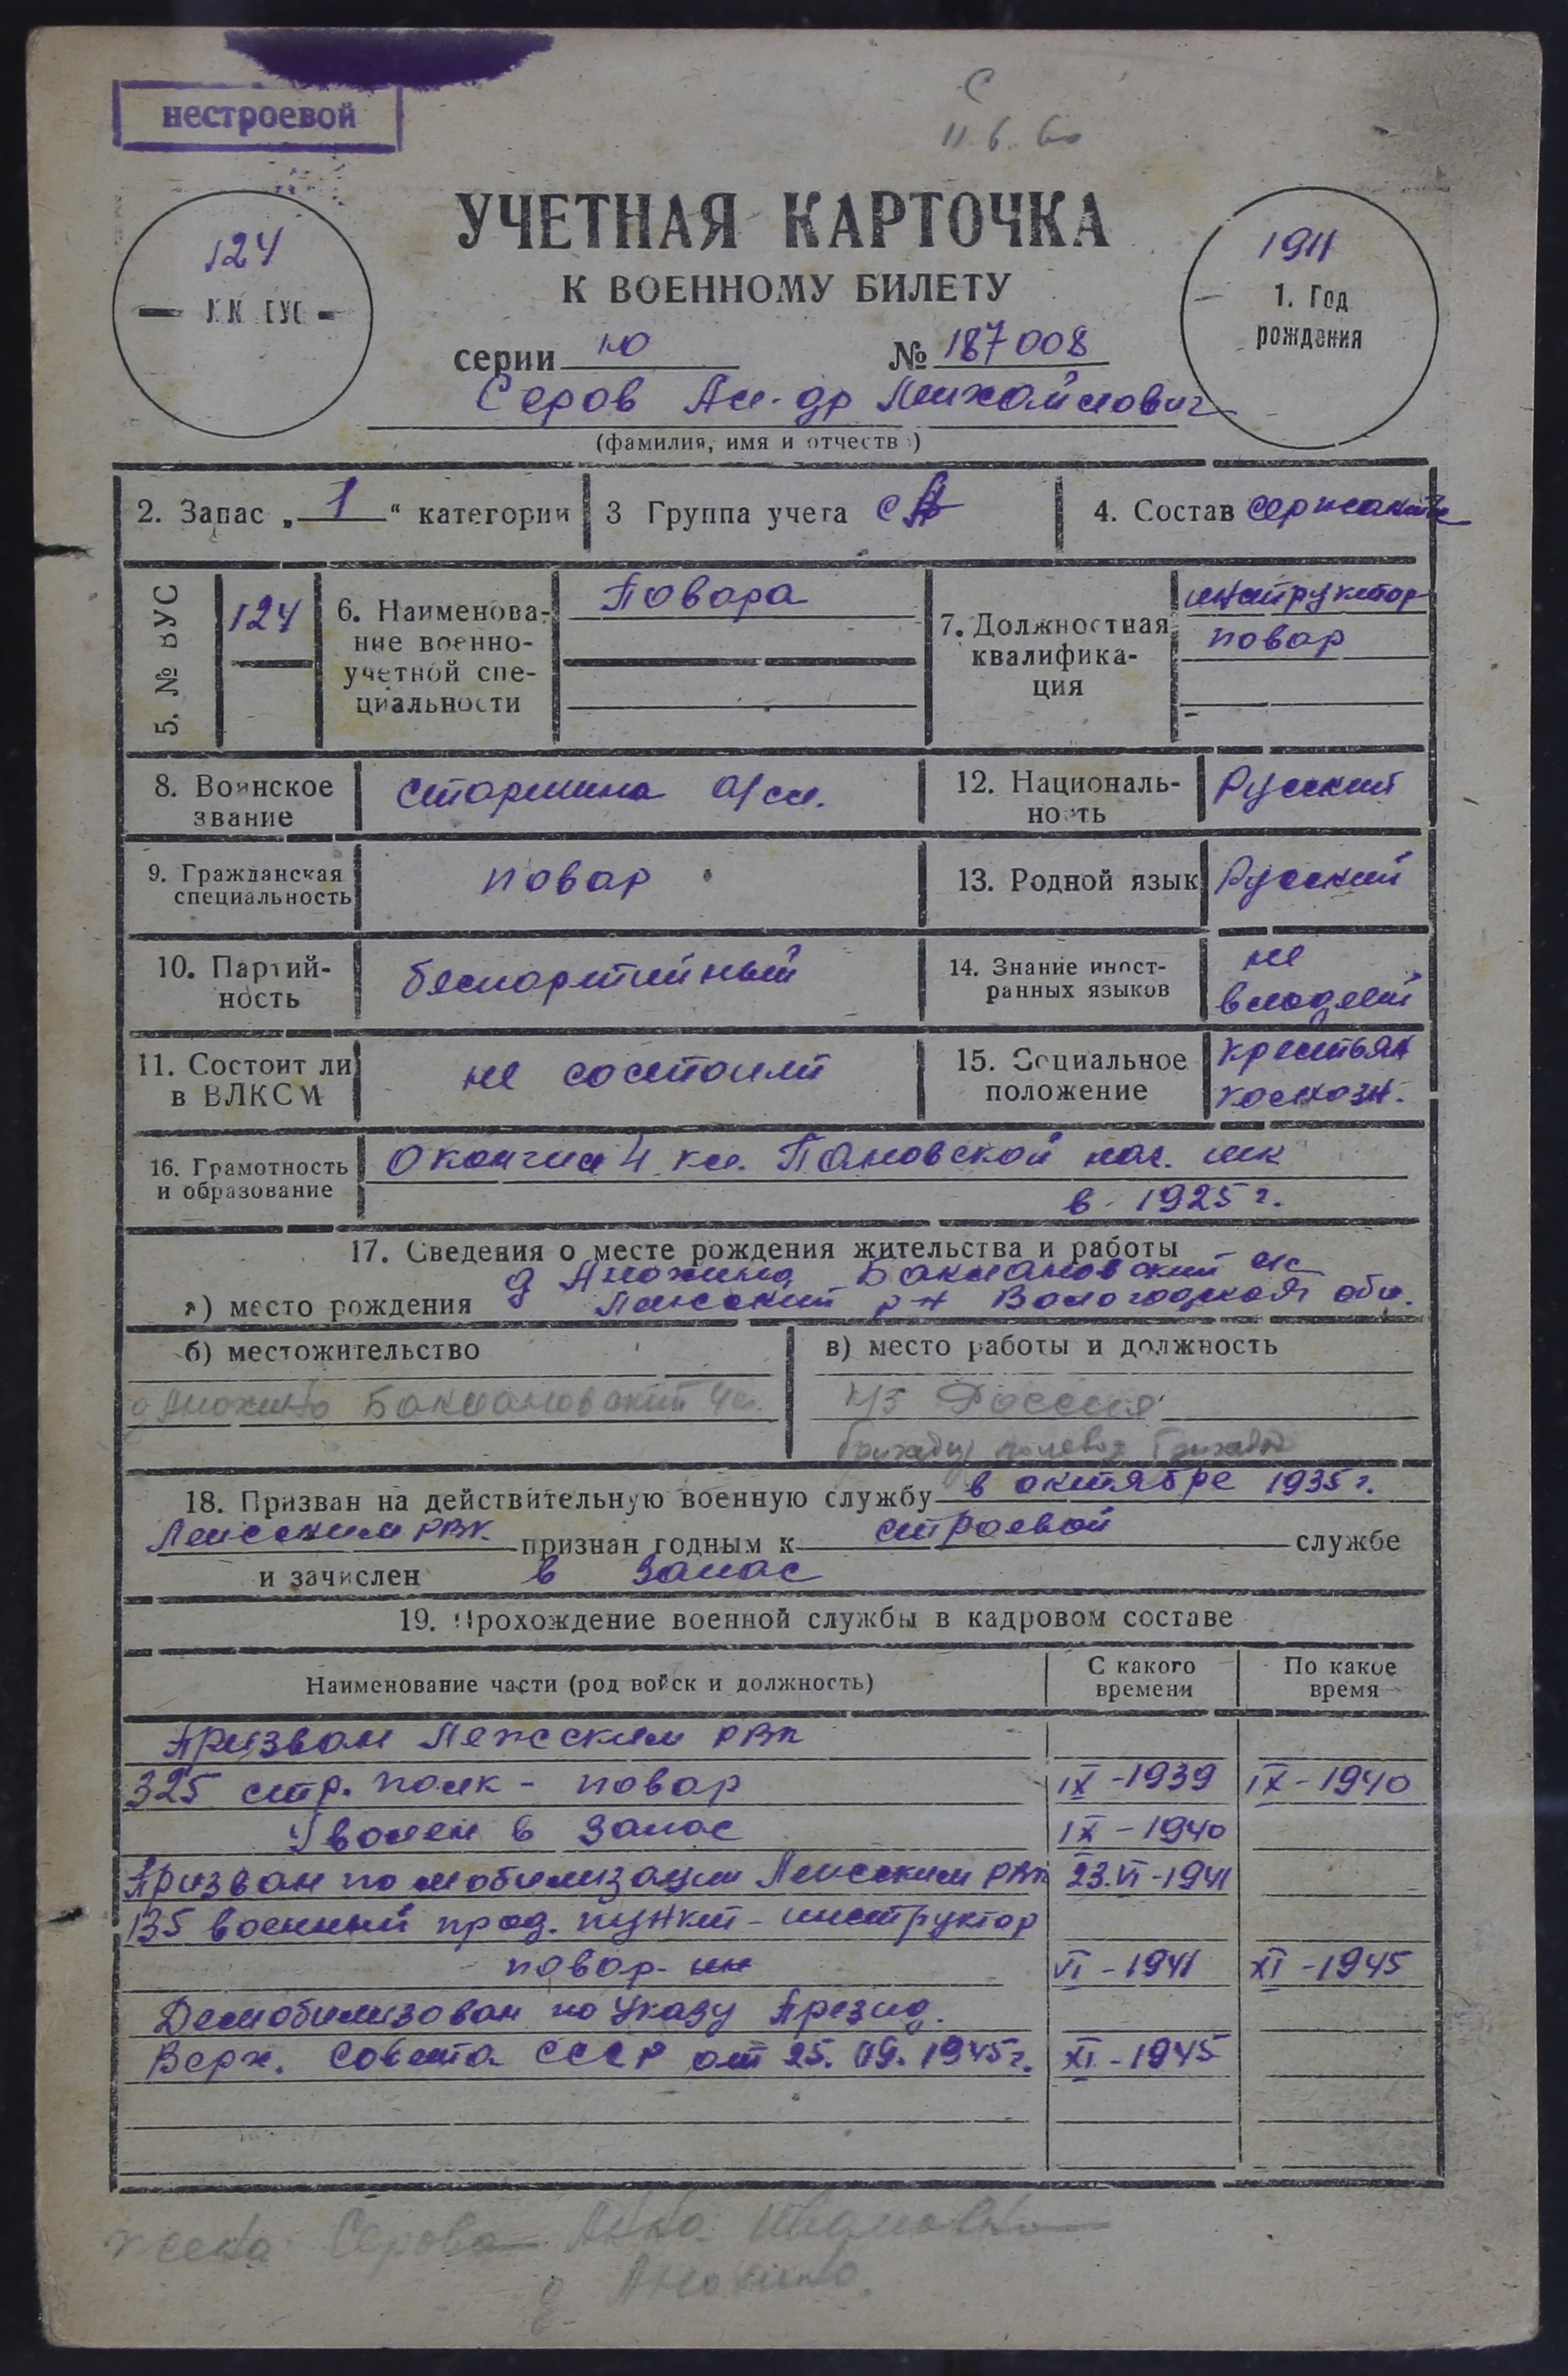 нестроевой
11.6.60
УЧЕТНАЯ КАРТОЧКА
К ВОЕННОМУ БИЛЕТУ
124
1911
1. Год
рождения
серии Ю № 187008
Серов Ал-др Михайлович
(фамилия, имя и отчеств )
2. Запас „ 1 “ категории 3 Группа учета СА 4. Состав сержанты
5. № ВУС 124 6. Наименова-
ние военно-
учетной спе-
циальности
Повара
7. Должностная
квалифика-
ция
инструктор
повар
8. Воинское
звание
старшина а/сл.
12. Националь-
ность
Русский
9. Гражданская
специальность
повар
13. Родной язык Русский
10. Партий-
ность
беспартийный
14. Знание иност-
ранных языков
не
владеет
11. Состоит ли
в ВЛКСМ
не состоит
15. Социальное
положение
крестьян
колхозн.
16. Грамотность
и образование
Окончил 4 кл. Пановской нач. шк
в 1925 г.
17. Сведения о месте рождения жительства и работы
д Анохино Баклановский с/с
а) место рождения Лежский р-н Вологодской обл.
б) местожительство
в) место работы и должность
д Анохино Баклановский с/с.
к/з Россия
полевод бригады
18. Призван на действительную военную службу в октябре 1935 г.
Лежским РВК. признан годным к строевой службе
и зачислен в запас
19. Прохождение военной службы в кадровом составе
Наименование части (род войск и должность)
С какого
времени
По какое
время
Призван Лежским РВК
325 стр. полк - повар IX-1939 IX-1940
Уволен в запас IX-1940
Призван по мобилизации Лежским РВК 23.VI-1941
135 военный прод. пункт - инструктор
повар- ин VI-1941 XI-1945
Демобилизован по Указу Презид.
Верх. Совета СССР от 25.09.1945г. XI-1945
жена Серова Анна Ивановна
д. Анохино.